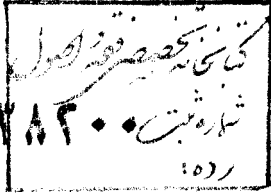 کتابخانه تخصصی فقه و اصول
شماره ثبت
رده: